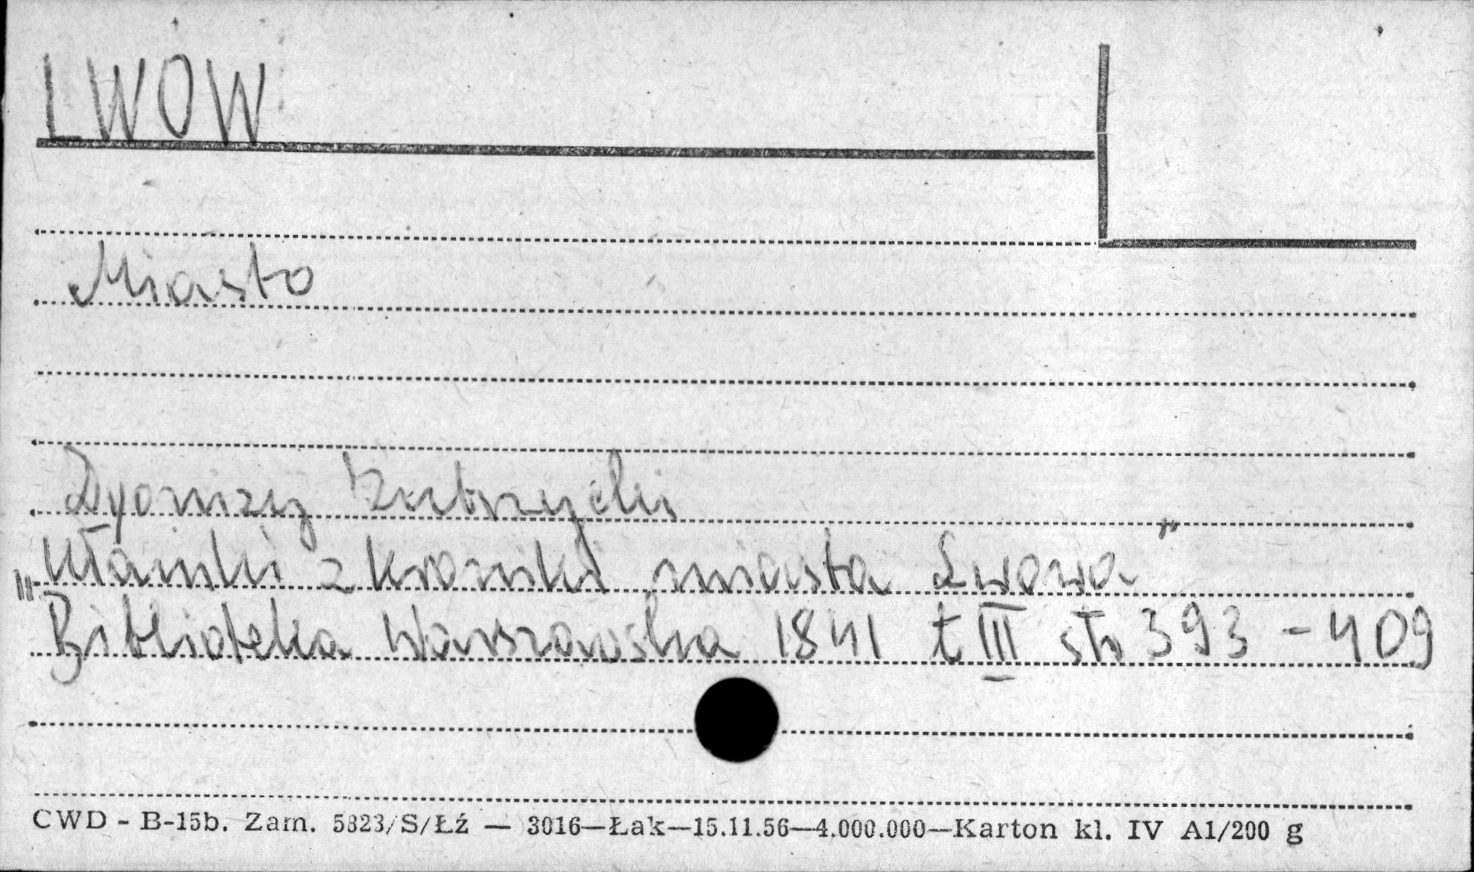 LWOW
Miasto
Dyonizy Zubrzycki
„Ułamki z kroniki miasta Lwowa”
Biblioteka Warszawska 1841 t III str 393 - 409
CWD - B-15b. Zam. 5823/S/Łź — 3016—Łak—15.11.56—4.000.000—Karton kl. IV A1/200 g